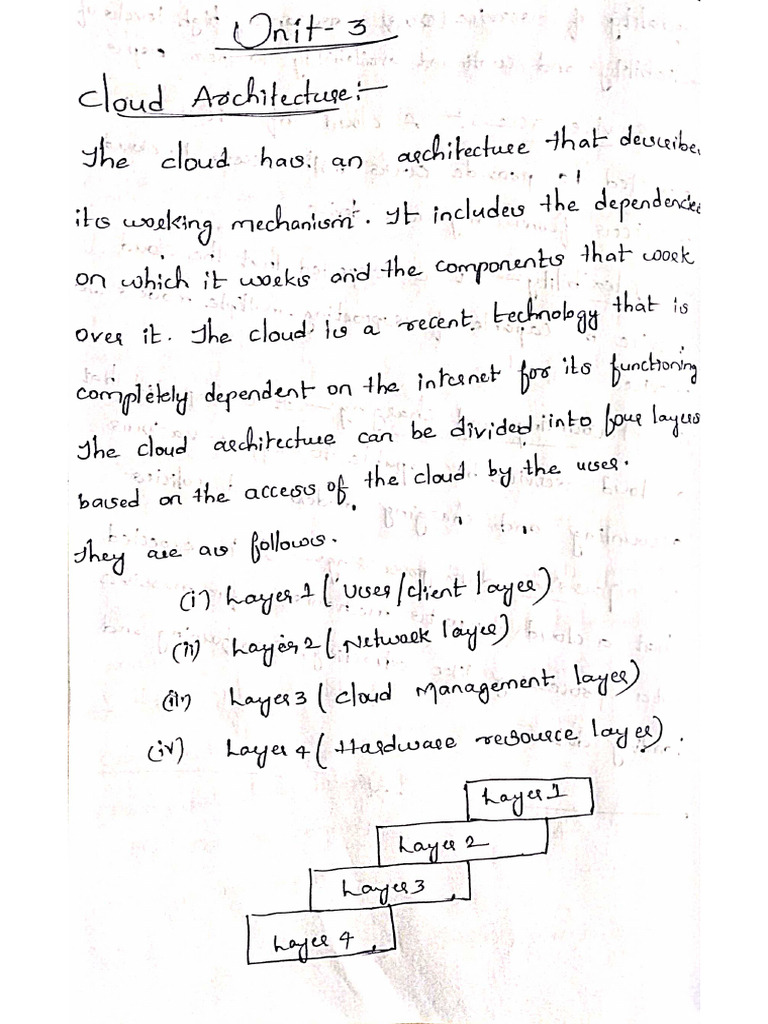 Unit - 3
Cloud Architecture:-
The cloud has an architecture that describes
its working mechanism. It includes the dependencies
on which it works and the components that work
over it. The cloud is a recent technology that is
completely dependent on the internet for its functioning
The cloud architecture can be divided into four layers
based on the access of the cloud by the user.
They are as follows.
(i) Layer 1 (User/client layer)
(ii) Layer 2 (Network layer)
(iii) Layer 3 (Cloud Management layer)
(iv) Layer 4 (Hardware resource layer).
Layer 1
Layer 2
Layer 3
Layer 4